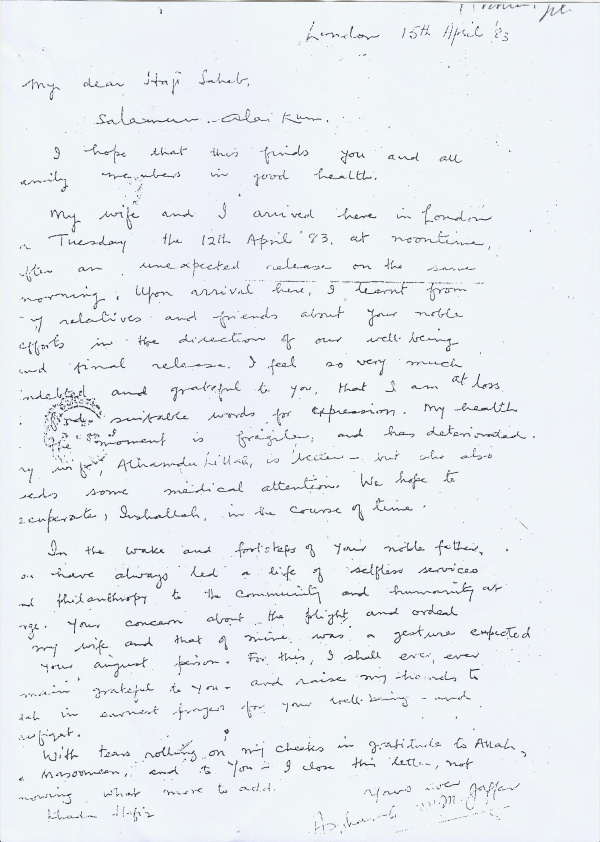 London 15th April '83
My dear Haji Saheb,
Salamun-Alai Kum.
I hope that this finds you and all
amily members in good health.
My wife and I arrived here in London
n Tuesday the 12th April '83. at noontime,
fter an unexpected release on the same
morning. Upon arrival here, I learnt from
y relatives and friends about your noble
efforts in the direction of our well-being
and final release. I feel so very much
indebted and grateful to you, that I am at loss
suitable words for expression. My health
moment is fragile, and has deteriorated.
my wife, Alhamdu lillah, is better - but she also
eeds some medical attention. We hope to
ecuperate, Inshallah, in the course of time.
In the wake and footsteps of your noble father,
ou have always led a life of selfless services
nd philanthropy to the community and humanity at
rge. Your concern about the plight and ordeal
my wife and that of mine was a gesture expected
your august person. For this, I shall ever, ever
main grateful to you - and raise my hands to
lah in earnest prayers for your well-being - and
With tears rolling on my cheeks in gratitude to Allah,
Masoomeen, and to you - I close this letter, not
nowing what more to add.
Yours ever
Khuda Hafiz
M. Jaffer